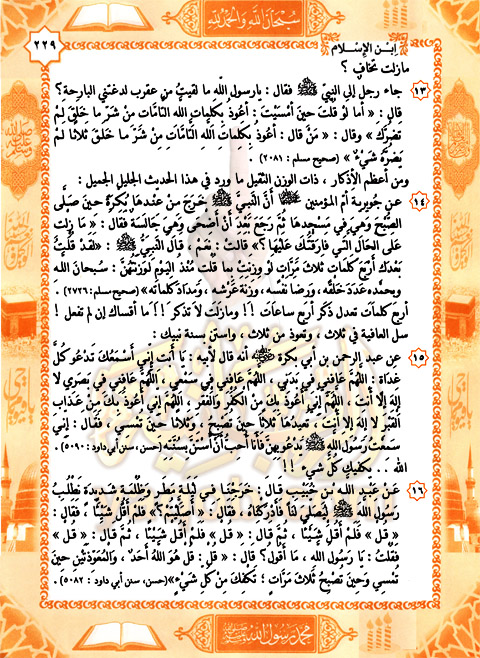 سبحان الله والحمد لله
٢٢٩
أين الإسلام
مازلت تخاف ؟
١٣ جاء رجل إلى النبي ﷺ فقال : يارسول الله ما لقيتُ من عقرب لدغتني البارحة؟
قال : « أما لو قُلتَ حين أمسيتَ : أعوذُ بكلمات الله التَّامَّات مِنْ شَرِّ ما خَلَقَ لم
تضرّك » وقال : « مَنْ قال : أعوذ بكلمات الله التَّامَّات مِنْ شَرِّ ما خلق ثلاثًا لم
يَضرَّهُ شيءٌ » (صحيح سلم : ٢٠٨١)
ومن أعظم الأذكار ، ذات الوزن الثقيل ما ورد في هذا الحديث الجليل الجميل :
١٤ عن جويرية أم المؤمنين أنَّ النَّبيَّ ﷺ خَرَجَ من عندها بُكرةً حين صلَّى
الصُّبْحَ وهي في مسجدها ثُمَّ رَجَعَ بَعْدَ أنْ أضْحَى وهي جالسةٌ فقال : « ما زلت
على الحال الَّتي فارقتُك عليها ؟» قالت : نَعَمْ ، قال النَّبيُّ ﷺ : «لقد قُلْتُ
بَعْدَك أرْبَعَ كلمات ثلاث مَرَّاتٍ لو وُزِنَتْ بما قلت منذُ اليوم لوزنتهُنَّ : سبحان الله
وبحمده عَدَدَ خَلقه، ورضا نفسه، وزنة عرشه ، ومداد كلماته» (صحيح سلم : ٢٧٢٦)
أربع كلمات تعدل ذكر أربع ساعات !! ومازلت لا تذكر !! ما أقساك إن لم تفعل !
سل العافية في ثلاث ، وتعوذ من ثلاث ، واستن بسنة نبيك :
١٥ عن عبد الرحمن بن أبي بكرة أنه قال لأبيه : يا أبت إني أسمعُك تدْعُو كُلَّ
غَداة : اللَّهم عَافني في بَدَني ، اللَّهم عَافني في سَمْعي ، اللَّهم عَافني في بَصَري لا
إله إلا أنت ، اللَّهم إني أعوذُ بك من الكُفْر والفَقر ، اللَّهم إني أعوذ بك من عَذاب
القَبر لا إله إلا أنت ، تعيدُها ثلاثًا حين تُصْبح ، وثلاثًا حين تُمْسي ، فقال : إني
سَمعْتُ رسُولَ الله ﷺ يَدْعُو بهنَّ فأنا أُحبُّ أنْ أسْتَنَّ بسُنَّته (حسن، سنن أبي داود : ٥٠٩٠)
الله .. يكفيك كل شيء !!
١٦ عَنْ عَبْد الله بْن خُبَيْب قَالَ : خَرَجْنا في لَيلة مَطَر وظُلمة شديدة نَطْلُبُ
رسُولَ الله ﷺ ليُصلي لنا فأدركناه ، فقال : « أصليتم ؟» فلم أقُل شيئًا ، فقال :
« قل » فلم أقُل شيئًا ، ثم قال : « قل » فلم أقُل شيئًا ، ثم قال : « قل »
فقلتُ : يا رسول الله ، ما أقول؟ قال : « قل : قُل هُو الله أحدٌ ، والمُعَوِّذتين حين
تُمْسي وحين تُصْبحُ ثلاثَ مَرَّاتٍ ؛ تكفيك من كُلِّ شيءٍ» (حسن، سنن أبي داود : ٥٠٨٢)
محمد رسول الله